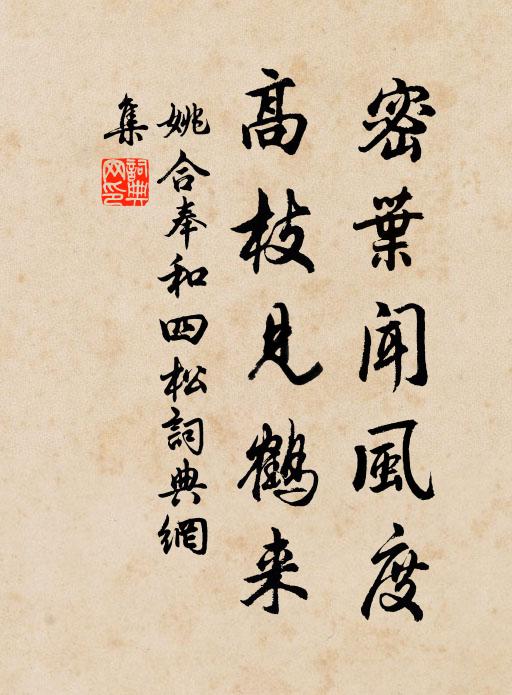 密葉聞風度
高枝見鶴来
姚合奉和四松詞典網
集
詞典網印